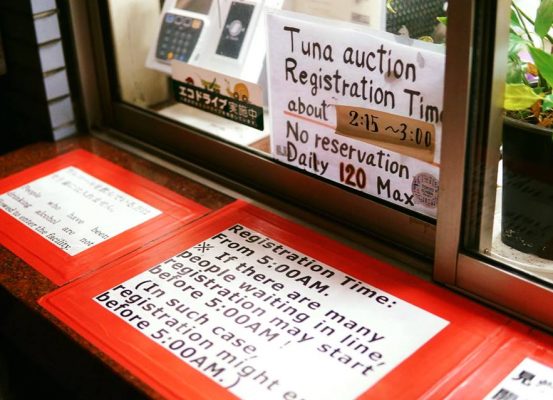 Tuna auction
Registration Time
about 2:15~3:00
No reservation
Daily 120 Max
エコドライブ実施中
People who have been
drinking alcohol are not
allowed to enter the facility.
Registration Time:
From 5:00AM.
※ If there are many
people waiting in line,
registration may start
before 5:00AM !
(In such case,
registration might e
before 5:00AM.)
見